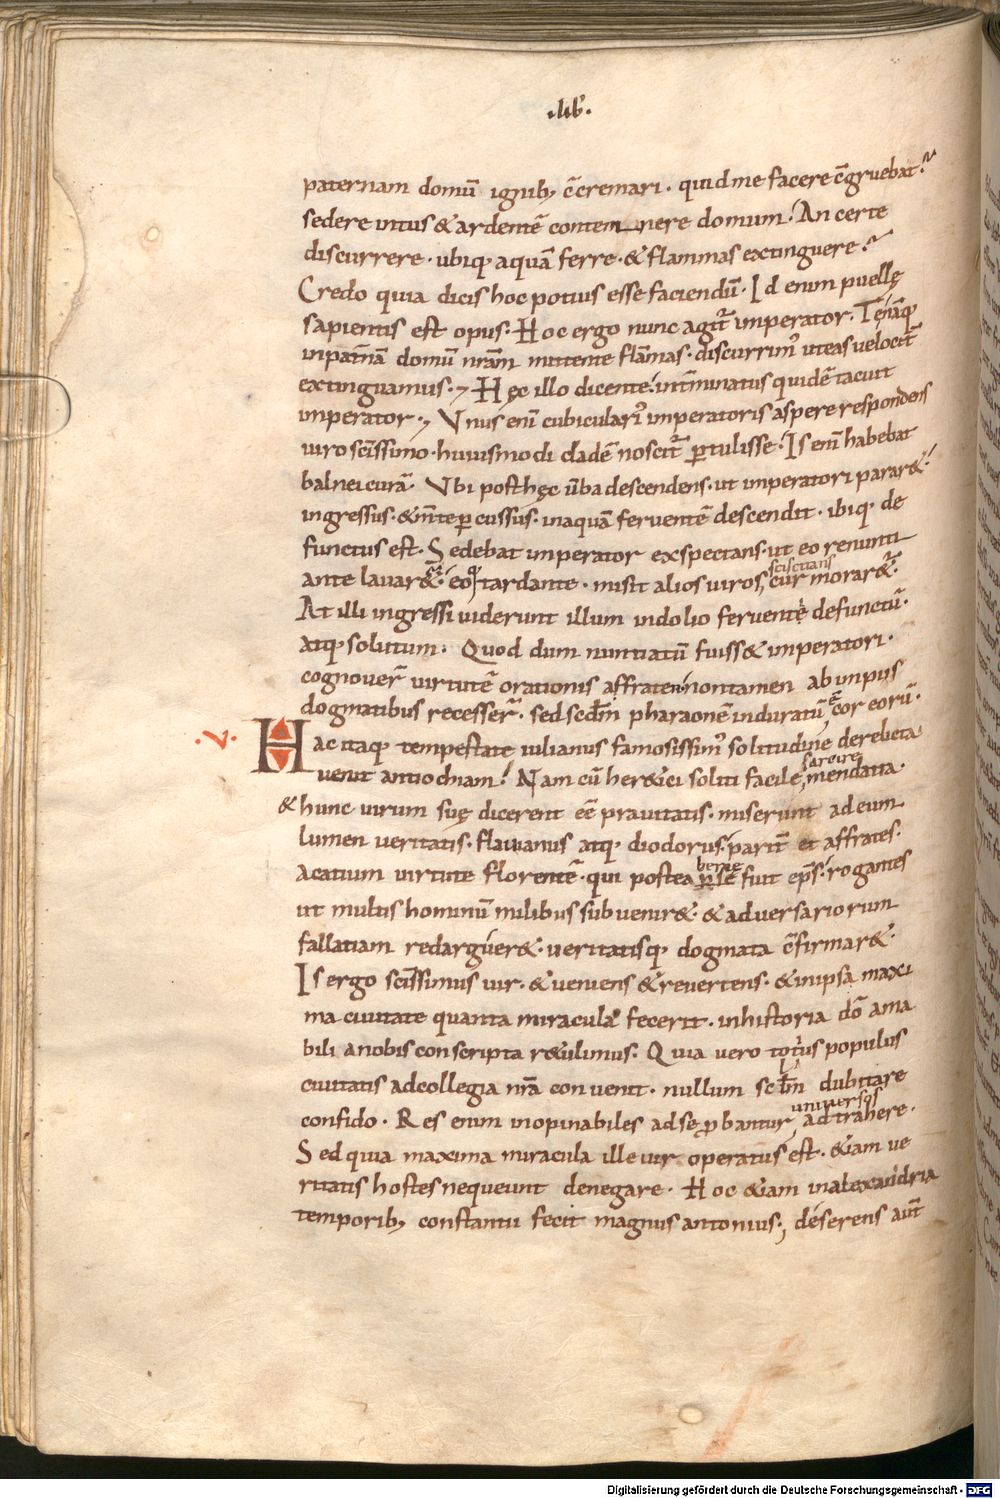 .lib̄.
paternam domū ignib; c̄cremari. quid me facere c̄gruebat?
sedere intus & ardentē contemnere domum? An certe
discurrere. ubiq; aquā ferre. & flammas extinguere?
Credo quia dicis hoc potius esse faciendū. Id enim puellę
sapientis est opus. Hoc ergo nunc agit᷑ imperator.
inpat̄nā domū nr̄am mittente flāmas. discurrim᷒ ut eas velocit̄
extinguamus. Hęc illo dicente. int̄minatus quidē tacuit
imperator. Unus eni᷒ cubiculari᷒ imperatoris aspere respondens
viro sc̄issimo. huiusmodi cladē noscit᷑ ꝑtulisse. Is eni᷒ habebat
balnei curā. Ubi post hęc ūba descendens. ut imperatori parar&
ingressus. & m̄te ꝑcussus. in aquā ferventē descendit. ibiq; de
functus est. Sedebat imperator exspectans. ut eo renunti
ante lavar&. eoq; tardante. misit alios viros, sciscitans cur morar&᷑.
At illi ingressi viderunt illum in dolio fervente defunctū.
atq; solutum. Quod dum nuntiatū fuiss& imperatori.
cognover̄ virtutē orationis affraten. non tamen ab impiis
dogmatibus recesser̄. sed scd̄m pharaonem induratū ē cor eorū.
.V. Hac itaq; tempestate iulianus famosissim᷒ solitudine derelicta
venit antiochiam. Nam cū her&ici soliti facile sarcire mendatia.
& hunc virum suę dicerent ee᷒ pravitatis. miserunt ad eum
lumen veritatis. flavianus atq; diodorus. parit̄ et affrates.
acatium virtute florentē. qui postea beroę fuit ep̄s. rogantes
ut multis hominū milibus subvenir&. & adversariorum
fallatiam redarguer&. veritatisq; dogmata c̄firmar&.
Is ergo sc̄issimus vir. & veniens & revertens. & in ipsa maxi
ma civitate quanta miracula fecerit. in historia dō ama
bili a nobis conscripta r&ulimus. Quia vero totus populus
civitatis ad collegia nr̄a convenit. nullum scd̄m dubitare
confido. Res enim inopinabiles ad se ꝓbantur universos adtrahere.
Sed quia maxima miracula ille vir operatus est. &iam ve
ritatis hostes nequeunt denegare. Hoc &iam in alexandria
temporib; constantii fecit magnus antonius. deserens aut̄
Digitalisierung gefördert durch die Deutsche Forschungsgemeinschaft - DFG